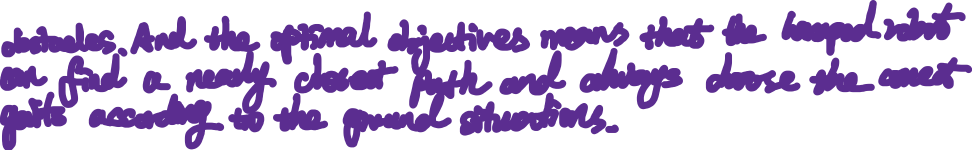 obstacles. And the optimal objectives means that the hexapod robot
can find a nearly closest path and always choose the correct
gaits according to the ground situations.